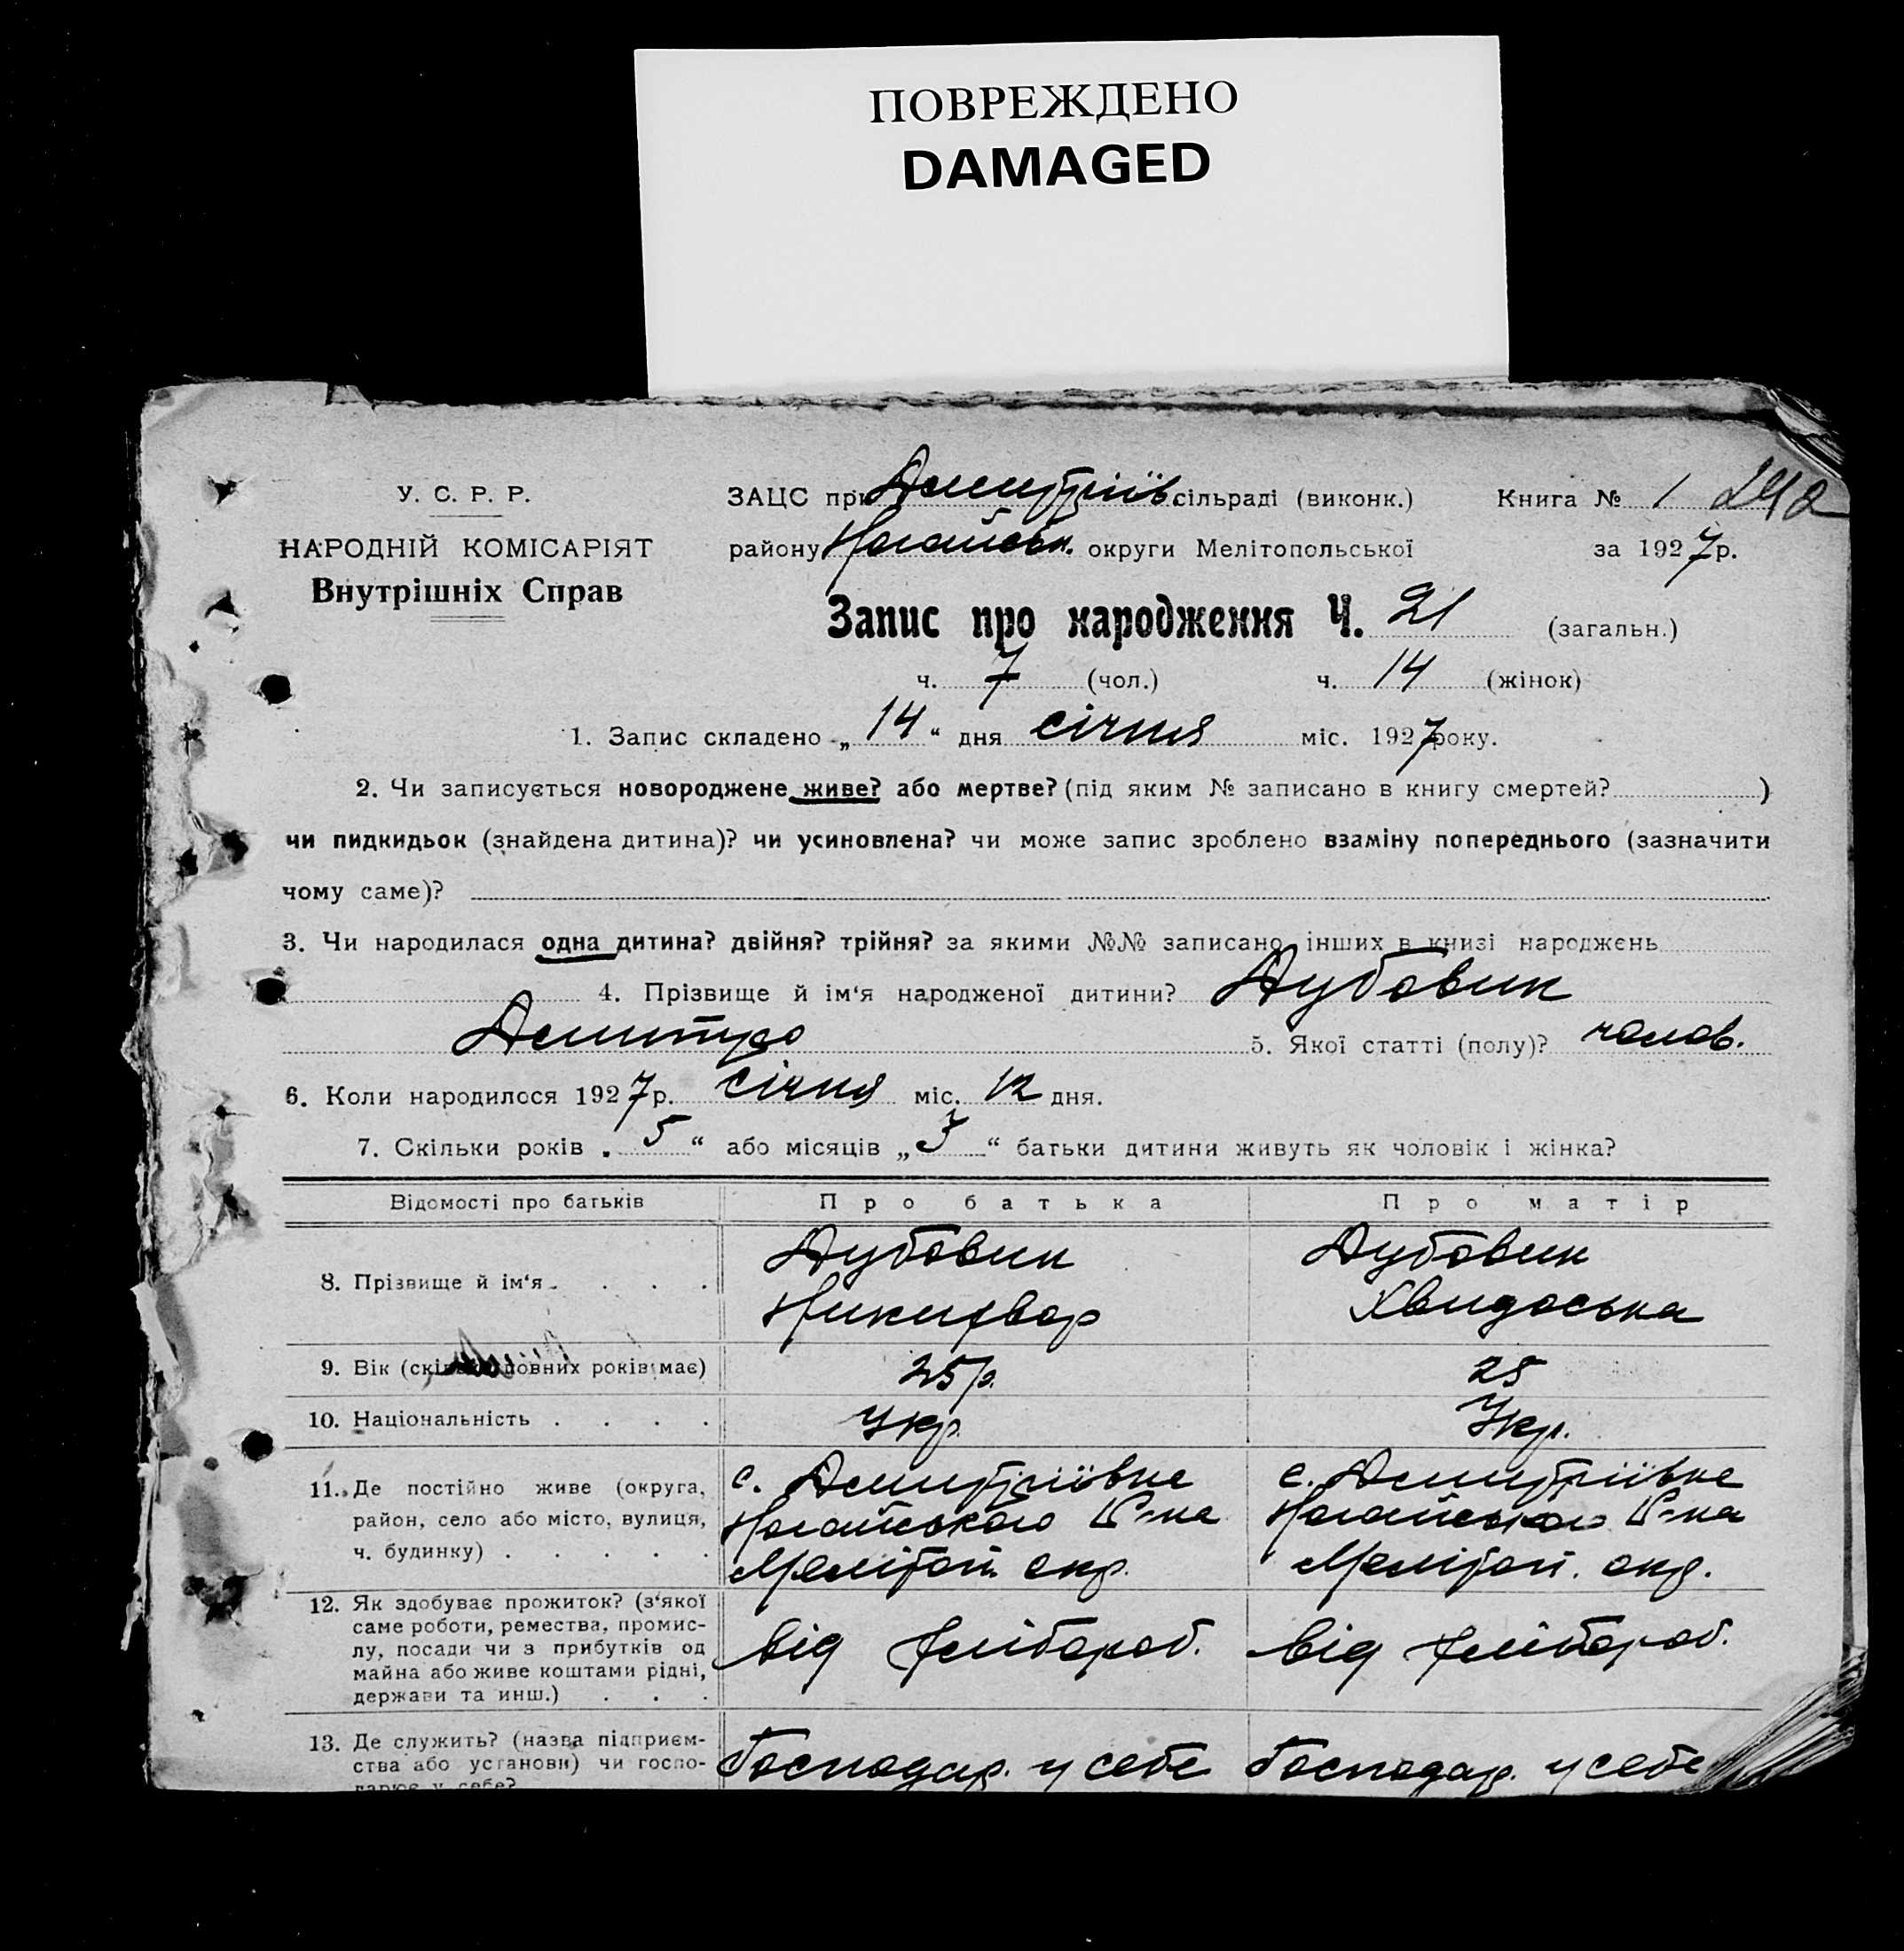 ПОВРЕЖДЕНО
DAMAGED
У. С. Р. Р.
НАРОДНІЙ КОМІСАРІЯТ
Внутрішніх Справ
ЗАЦС при Дмитріїв. сільраді (виконк.) Книга № 1 242
району Ногайськ. округи Мелітопольської за 1927 р.
Запис про народження Ч. 21 (загальн.)
ч. 7 (чол.) ч. 14 (жінок)
1. Запис складено „ 14 “ дня січня міс. 1927 року.
2. Чи записується новороджене живе? або мертве? (під яким № записано в книгу смертей? )
чи пидкидьок (знайдена дитина)? чи усиновлена? чи може запис зроблено взаміну попереднього (зазначити
чому саме)?
3. Чи народилася одна дитина? двійня? трійня? за якими №№ записано інших в книзі народжень
4. Прізвище й ім‘я народженої дитини? Дубовик
Дмитро 5. Якої статті (полу)? чолов.
6. Коли народилося 1927 р. січня міс. 12 дня.
7. Скільки років „ 5 “ або місяців „ 3 “ батьки дитини живуть як чоловік і жінка?
Відомості про батьків Про батька Про матір
8. Прізвище й ім‘я . . . . Дубовик Дубовик
Никихвор Хвидоська
9. Вік (скільки повних років має) 25 р. 25
10. Національність . . . . Укр. Укр.
11. Де постійно живе (округа, район, село або місто, вулиця, ч. будинку) . . . . .
с. Дмитріївка
Ногайського Р-на
Меліто𝗉. окр.
с. Дмитріївка
Ногайського Р-на
Мелітоп. окр.
12. Як здобуває прожиток? (з‘якої
саме роботи, ремества, промис-
лу, посади чи з прибутків од
майна або живе коштами рідні,
держави та инш.) . . .
від хлібороб. від хлібороб.
13. Де служить? (назва підприєм-
ства або установи) чи госпо-
дарює у себе?
Господар. у себе Господар. у себе